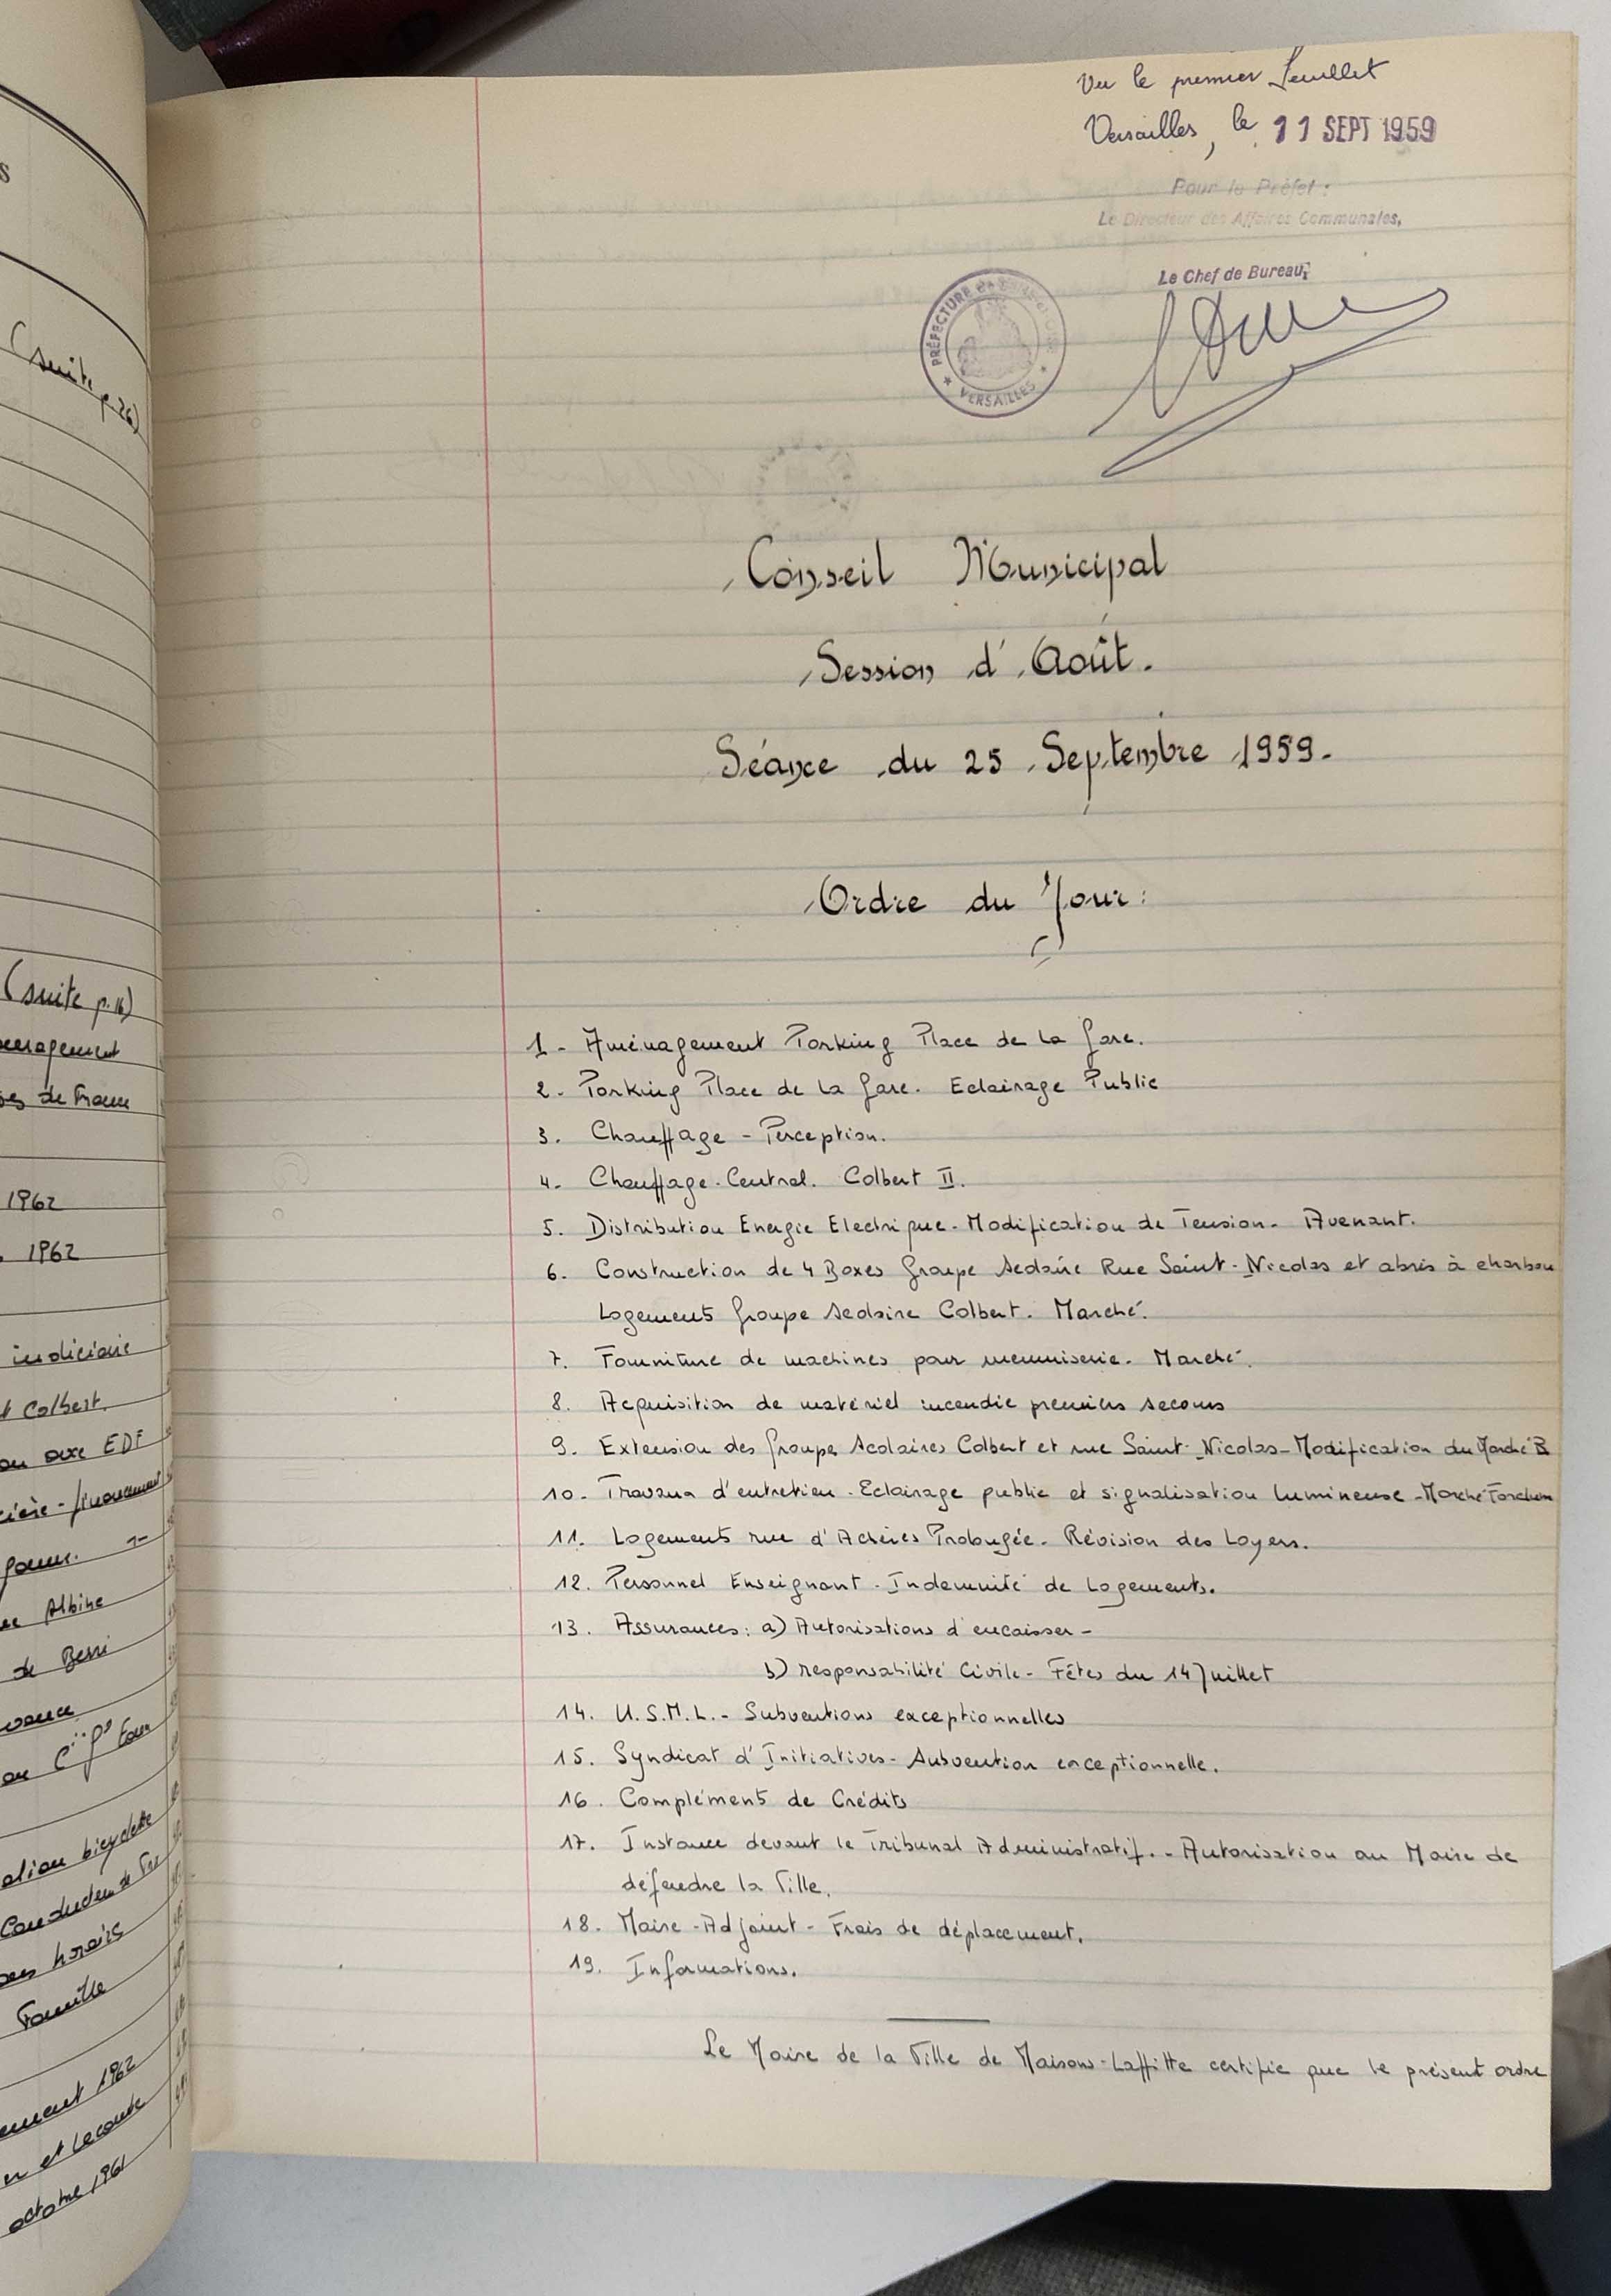 S
(suite
p.26)
(suite p.16)
1962
1962
Colbert.
EDF
Albine
de Berri
bicyclette
horaire
Famille
1962
et Lecomte
octobre 1961
Vu le premier feuillet
Versailles, le 11 SEPT 1959
Pour le Préfet :
Le Directeur des Affaires Communales,
Le Chef de Bureau,
PRÉFECTURE DE SEINE-ET-OISE
★ VERSAILLES ★
Conseil Municipal
Session d'Août.
Séance du 25 Septembre 1959.
Ordre du Jour :
1 - Aménagement Parking Place de la Gare.
2 - Parking Place de la Gare. Eclairage Public
3. Chauffage - Perception.
4. Chauffage Central. Colbert II.
5. Distribution Energie Electrique - Modification de Tension - Avenant.
6. Construction de 4 Boxes Groupe scolaire Rue Saint-Nicolas et abris à charbon
Logements Groupe scolaire Colbert. Marché.
7. Fourniture de machines pour menuiserie - Marché.
8. Acquisition de matériel incendie premiers secours
9. Extension des Groupes Scolaires Colbert et rue Saint-Nicolas - Modification du Marché B
10. Travaux d'entretien - Eclairage public et signalisation lumineuse - Marché
11. Logements rue d'Achères Prolongée - Révision des Loyers.
12. Personnel Enseignant - Indemnité de Logements.
13. Assurances : a) Autorisations d'encaisser -
b) responsabilité Civile - Fêtes du 14 Juillet
14. U.S.M.L. - Subventions exceptionnelles
15. Syndicat d'Initiatives - Subvention exceptionnelle.
16. Complément de Crédits
17. Instance devant le Tribunal Administratif. - Autorisation au Maire de
défendre la Ville.
18. Maire-Adjoint - Frais de déplacement.
19. Informations.
Le Maire de la Ville de Maisons-Laffitte certifie que le présent ordre